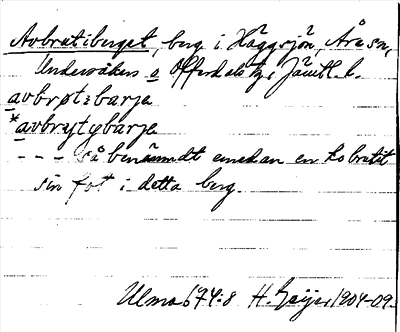 Avbrutiberget, berg i Häggsjön, Åre sn,
Undersåkers o Offerdals tg, Jämtl. l.
avbrøtɩbarjɛ
*avbrytɩbarjɛ
- - - så benämndt emedan en ko brutit
sin fot i detta berg.
Ulma 674:8 H. Geijer 1904-09.